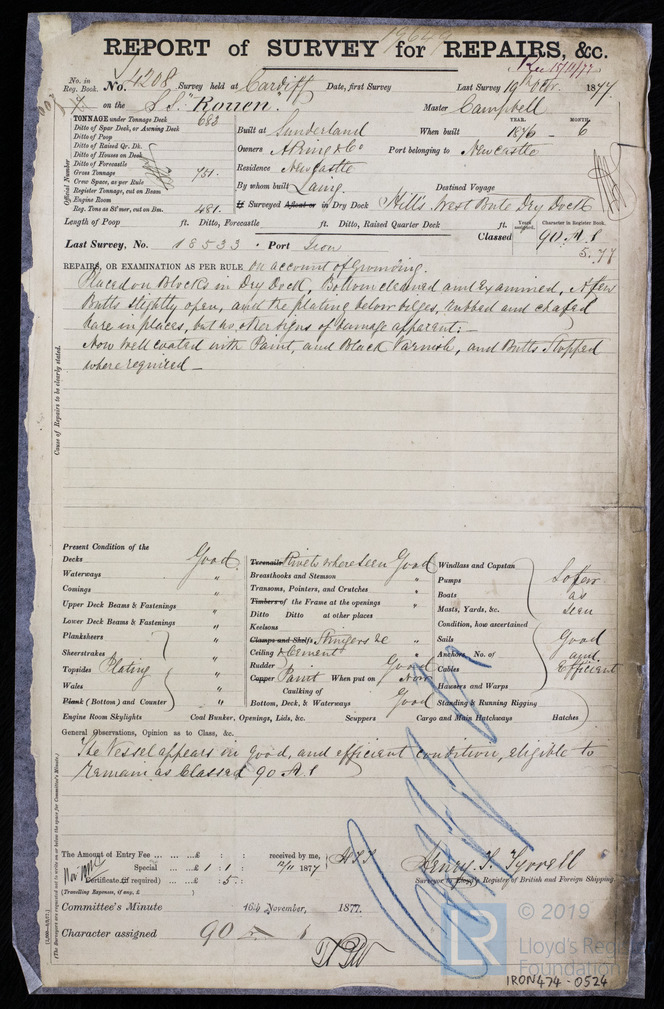 19649
REPORT of SURVEY for REPAIRS, &c.
Rec 15/11/77
No. in Reg. Book. No. 4208 Survey held at Cardiff Date, first Survey Last Survey 19th Oct. 1877
on the S.S. "Rouen" Master Campbell
TONNAGE under Tonnage Deck 683
Ditto of Spar Deck, or Awning Deck
Ditto of Poop
Ditto of Raised Qr. Dk.
Ditto of Houses on Deck
Ditto of Forecastle
Gross Tonnage 751.
Crew Space, as per Rule
Register Tonnage, cut on Beam
Engine Room
Reg. Tons as St'mer, cut on Bm. 481.
Official Number
Built at Sunderland When built YEAR. 1876 – MONTH. 6
Owners A Ring & Co Port belonging to Newcastle
Residence Newcastle
By whom built Laing. Destined Voyage
If Surveyed Afloat or in Dry Dock Hill's West Bute Dry Dock
Length of Poop ft. Ditto, Forecastle ft. Ditto, Raised Quarter Deck ft.
Years assigned. Character in Register Book.
Classed 90 A 1
5.77
Last Survey, No. 18533 . Port Iron
REPAIRS, OR EXAMINATION AS PER RULE on account of Grounding.
Placed on Blocks in Dry Dock, Bottom cleaned and Examined, A few
Butts slightly open, and the plating below bilges, rubbed and chafed
bare in places, but no other signs of damage apparent; —
Now well coated with Paint, and Black Varnish, and Butts Stopped
where required —
Cause of Repairs to be clearly stated.
Present Condition of the
Decks Good
Waterways "
Comings "
Upper Deck Beams & Fastenings "
Lower Deck Beams & Fastenings "
Planksheers "
Sheerstrakes "
Topsides Plating "
Wales "
Plank (Bottom) and Counter "
Treenails Rivets where seen Good
Breasthooks and Stemson "
Transoms, Pointers, and Crutches "
Timbers of the Frame at the openings "
Ditto Ditto at other places
Keelsons
Clamps and Shelfs, Stringers &c "
Ceiling & Cement "
Rudder Good
Copper Paint When put on Now
Caulking of
Bottom, Deck, & Waterways Good
Windlass and Capstan
Pumps
Boats
Masts, Yards, &c.
So far as seen
Condition, how ascertained
Sails
Anchors, No. of
Cables
Hawsers and Warps
Standing & Running Rigging
Good and Efficient
Engine Room Skylights Coal Bunker, Openings, Lids, &c. Scuppers Cargo and Main Hatchways Hatches
General Observations, Opinion as to Class, &c.
The Vessel appears in good, and efficient condition, eligible to
remain as Classed 90 A 1
The Amount of Entry Fee ... ... ... £ : : received by me,
Special ... ... £ 1 : 1 : 12/11 1877 H.T.T
Certificate (if required) ... £ : 5 :
(Travelling Expenses, if any, £ )
Henry T. Tyrrell
Surveyor to Lloyd's Register of British and Foreign Shipping.
Committee's Minute 16th November, 1877.
Character assigned 90 A 1
(The Surveyors are requested not to write on or below the space for Committee's Minute.)
© 2019
LR
Lloyd's Register
Foundation
IRON474-0524